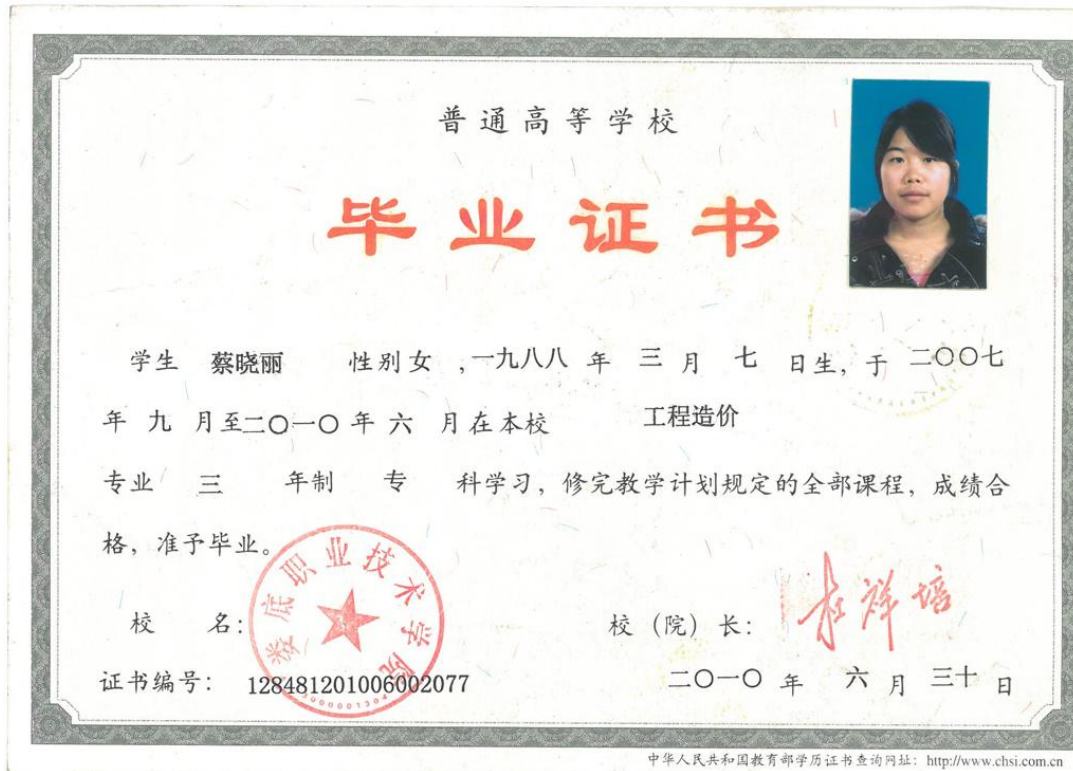 普通高等学校
毕业证书
学生 蔡晓丽 性别 女 ,一九八八 年 三 月 七 日生, 于 二〇〇七
年 九 月至二〇一〇 年 六 月在本校 工程造价
专业 三 年制 专 科学习, 修完教学计划规定的全部课程, 成绩合
格, 准予毕业。
娄底职业技术学院
校 名: 校 (院) 长: 杜祥培
证书编号: 128481201006002077 二〇一〇 年 六 月 三十 日
中华人民共和国教育部学历证书查询网址: http://www.chsi.com.cn